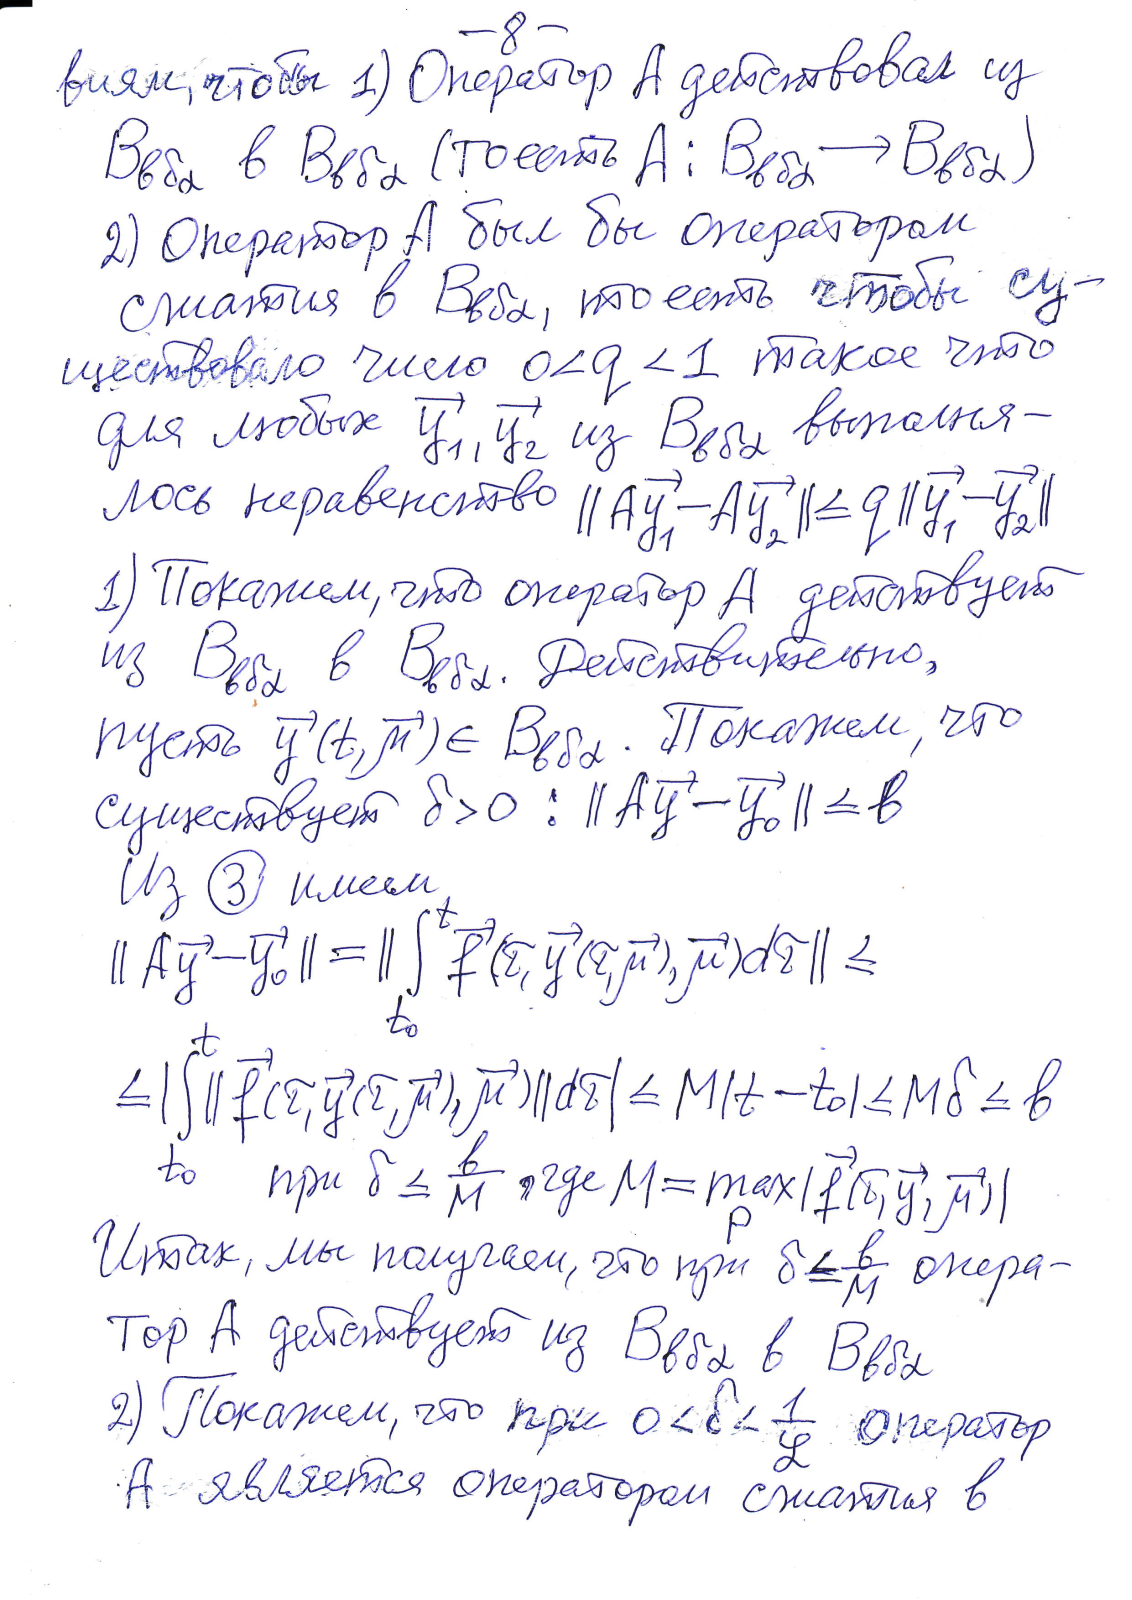 -8-
виям, чтобы 1) Оператор A действовал из
Bвδα в Bвδα (то есть A : Bвδα → Bвδα)
2) Оператор A был бы оператором
сжатия в Bвδα, то есть чтобы су-
ществовало число 0<q<1 такое что
для любых y⃗₁, y⃗₂ из Bвδα выполня-
лось неравенство ||Ay⃗₁-Ay⃗₂||≤q||y⃗₁-y⃗₂||
1) Покажем, что оператор A действует
из Bвδα в Bвδα. Действительно,
пусть y⃗(t,μ⃗)∈ Bвδα. Покажем, что
существует δ>0 : ||Ay⃗-y⃗₀||≤в
Из ③ имеем
||Ay⃗-y⃗₀|| = ||∫ₜ₀ᵗ f⃗(τ,y⃗(τ,μ⃗),μ⃗)dτ|| ≤
≤|∫ₜ₀ᵗ ||f⃗(τ,y⃗(τ,μ⃗),μ⃗)||dτ| ≤ M|t-t₀|≤Mδ≤в
при δ≤в/M, где M=max_P|f⃗(τ,y⃗,μ⃗)|
Итак, мы получаем, что при δ≤в/M опера-
тор A действует из Bвδα в Bвδα
2) Покажем, что при 0<δ<1/L оператор
A является оператором сжатия в